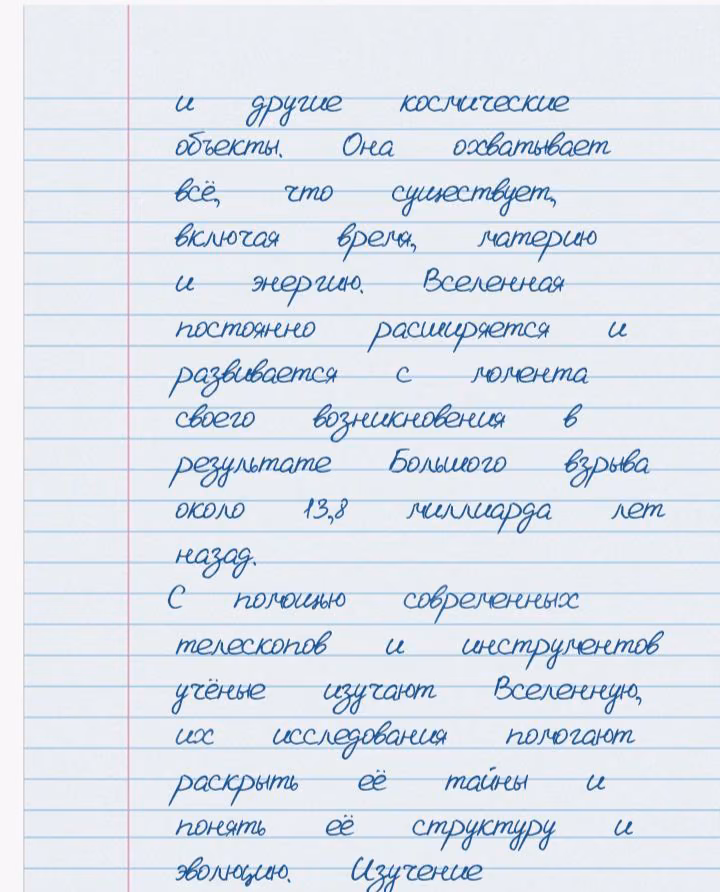 и другие космические
объекты. Она охватывает
всё, что существует,
включая время, материю
и энергию. Вселенная
постоянно расширяется и
развивается с момента
своего возникновения в
результате Большого взрыва
около 13,8 миллиарда лет
назад.
С помощью современных
телескопов и инструментов
учёные изучают Вселенную,
их исследования помогают
раскрыть её тайны и
понять её структуру и
эволюцию. Изучение